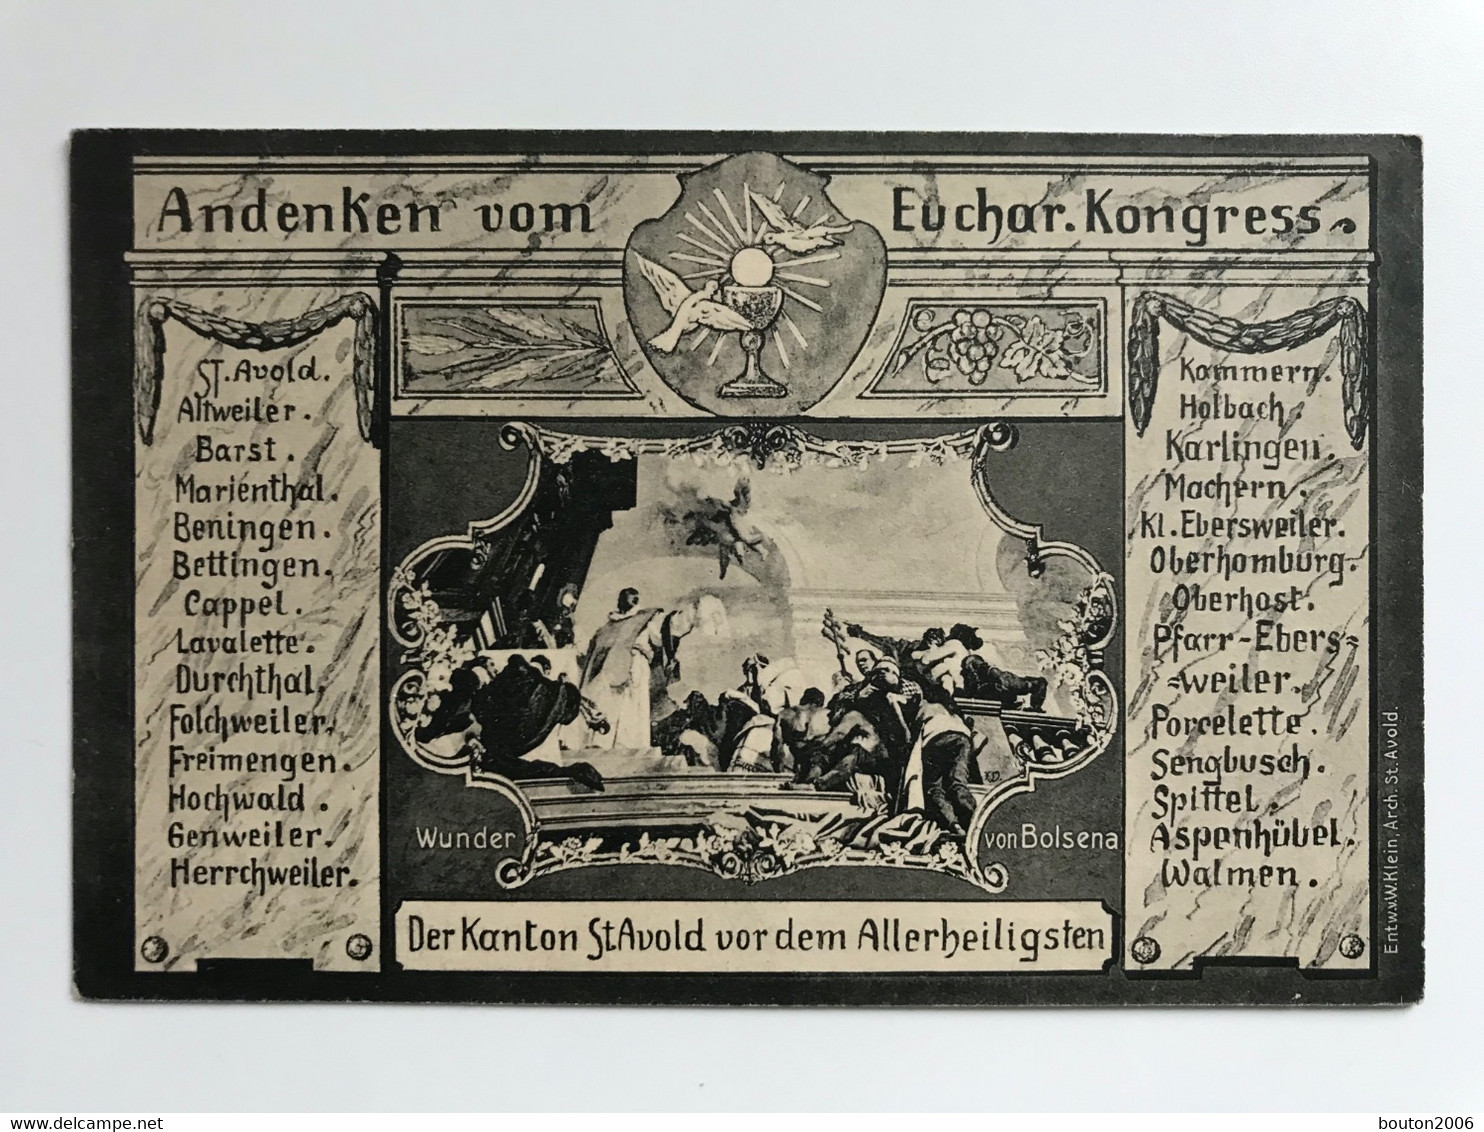 Andenken vom Euchar. Kongress.
St. Avold.
Altweiler.
Barst.
Mariénthal.
Beningen.
Bettingen.
Cappel.
Lavalette.
Durchthal.
Folchweiler.
Freimengen.
Hochwald.
Genweiler.
Herrchweiler.
Wunder von Bolsena
Der Kanton St Avold vor dem Allerheiligsten
Kammern.
Holbach.
Karlingen.
Machern.
Kl. Ebersweiler.
Oberhomburg.
Oberhost.
Pfarr-Ebers=
=weiler.
Porcelette.
Sengbusch.
Spittel.
Aspenhübel.
Walmen.
Entw. v. W. Klein, Arch. St. Avold.
delcampe.net
bouton2006